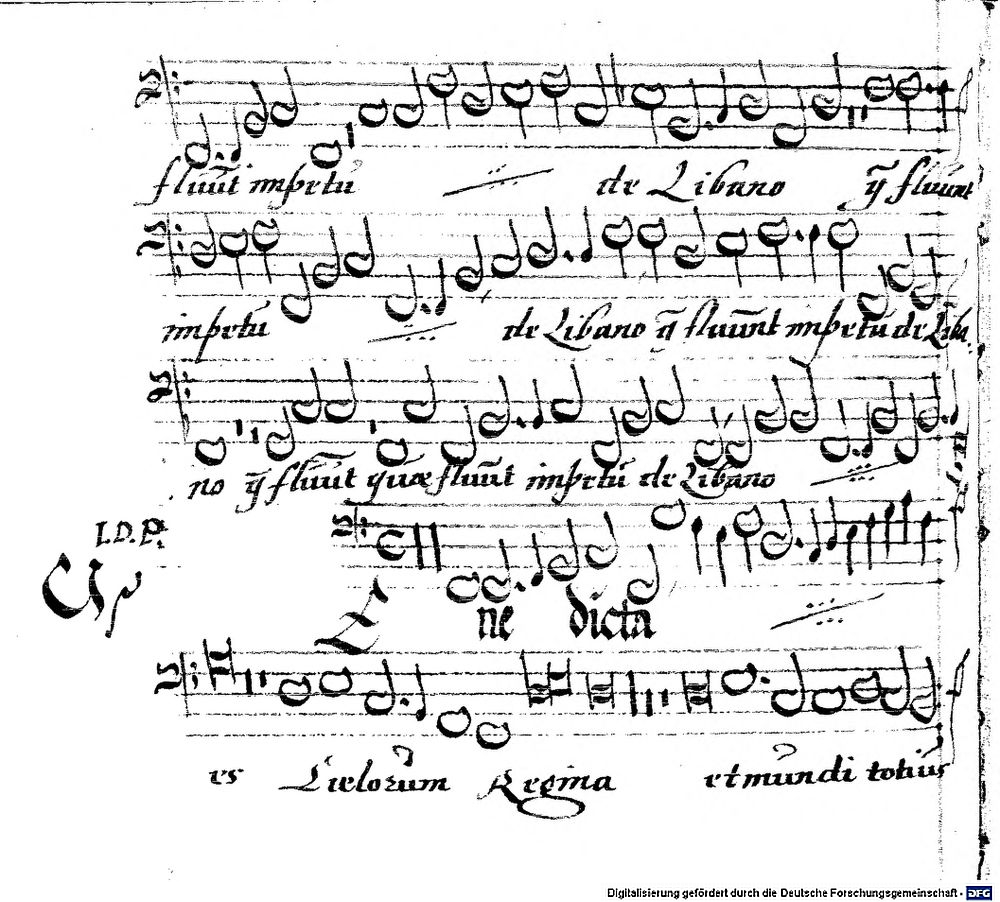 fluūt impetū de Libano q̄ fluūnt
impetū de Libano q̄ fluūnt impetū de Liba
no q̄ fluūt quæ fluūt impetū de Libano
I.D.P.
ne dicta
es Cœlorum Regina et mundi totius
Digitalisierung gefördert durch die Deutsche Forschungsgemeinschaft - DFG